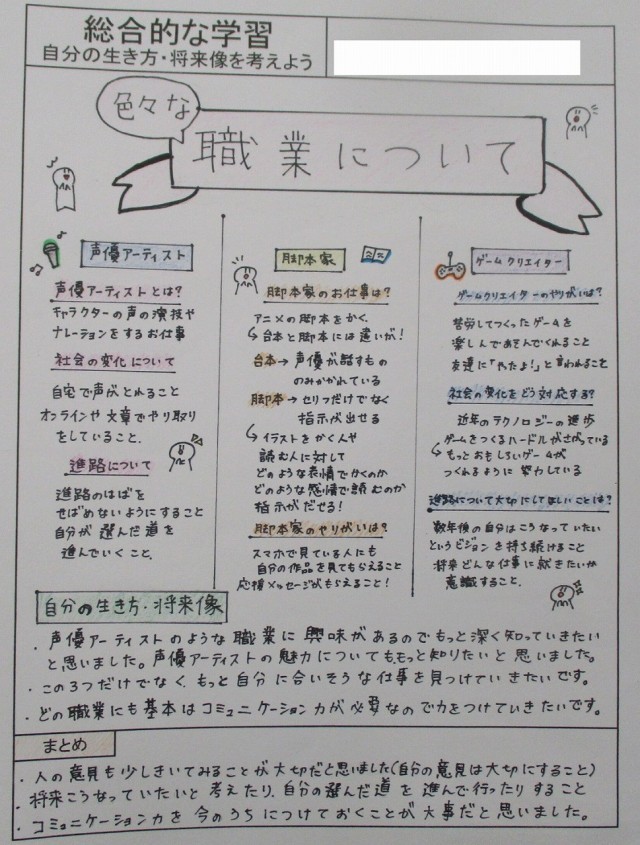 総合的な学習
自分の生き方・将来像を考えよう
色々な
職業について
声優アーティスト
声優アーティストとは?
キャラクターの声の演技や
ナレーションをするお仕事
社会の変化について
自宅で声がとれること
オンラインや文章でやり取り
をしていること.
進路について
進路のはばを
せばめないようにすること
自分が選んだ道を
進んでいくこと.
脚本家
脚本家のお仕事は?
アニメの脚本をかく.
台本と脚本には違いが!
台本→声優が話すもの
のみかかれている
脚本→セリフだけでなく
指示が出せる
イラストをかく人や
読む人に対して
どのような表情でかくのか
どのような感情で読むのか
指示がだせる!
脚本家のやりがいは?
スマホで見ている人にも
自分の作品を見てもらえること
応援メッセージがもらえること!
ゲームクリエイター
ゲームクリエイターのやりがいは?
苦労してつくったゲームを
楽しんであそんでくれること
友達に「やったよ!」と言われること
社会の変化をどう対応する?
近年のテクノロジーの進歩
ゲームをつくるハードルがさがっている
もっとおもしろいゲームが
つくれるように努力している
進路について大切にしてほしいことは?
数年後の自分はこうなっていたい
というビジョンを持ち続けること
将来どんな仕事に就きたいか
意識すること.
自分の生き方・将来像
・声優アーティストのような職業に興味があるのでもっと深く知っていきたい
と思いました。声優アーティストの魅力についてももっと知りたいと思いました。
・この3つだけでなく、もっと自分に合いそうな仕事を見つけていきたいです。
・どの職業にも基本はコミュニケーション力が必要なので力をつけていきたいです。
まとめ
・人の意見も少しきいてみることが大切だと思いました(自分の意見は大切にすること)
・将来こうなっていたいと考えたり、自分の選んだ道を進んで行ったりすること
・コミュニケーション力を今のうちにつけておくことが大事だと思いました。